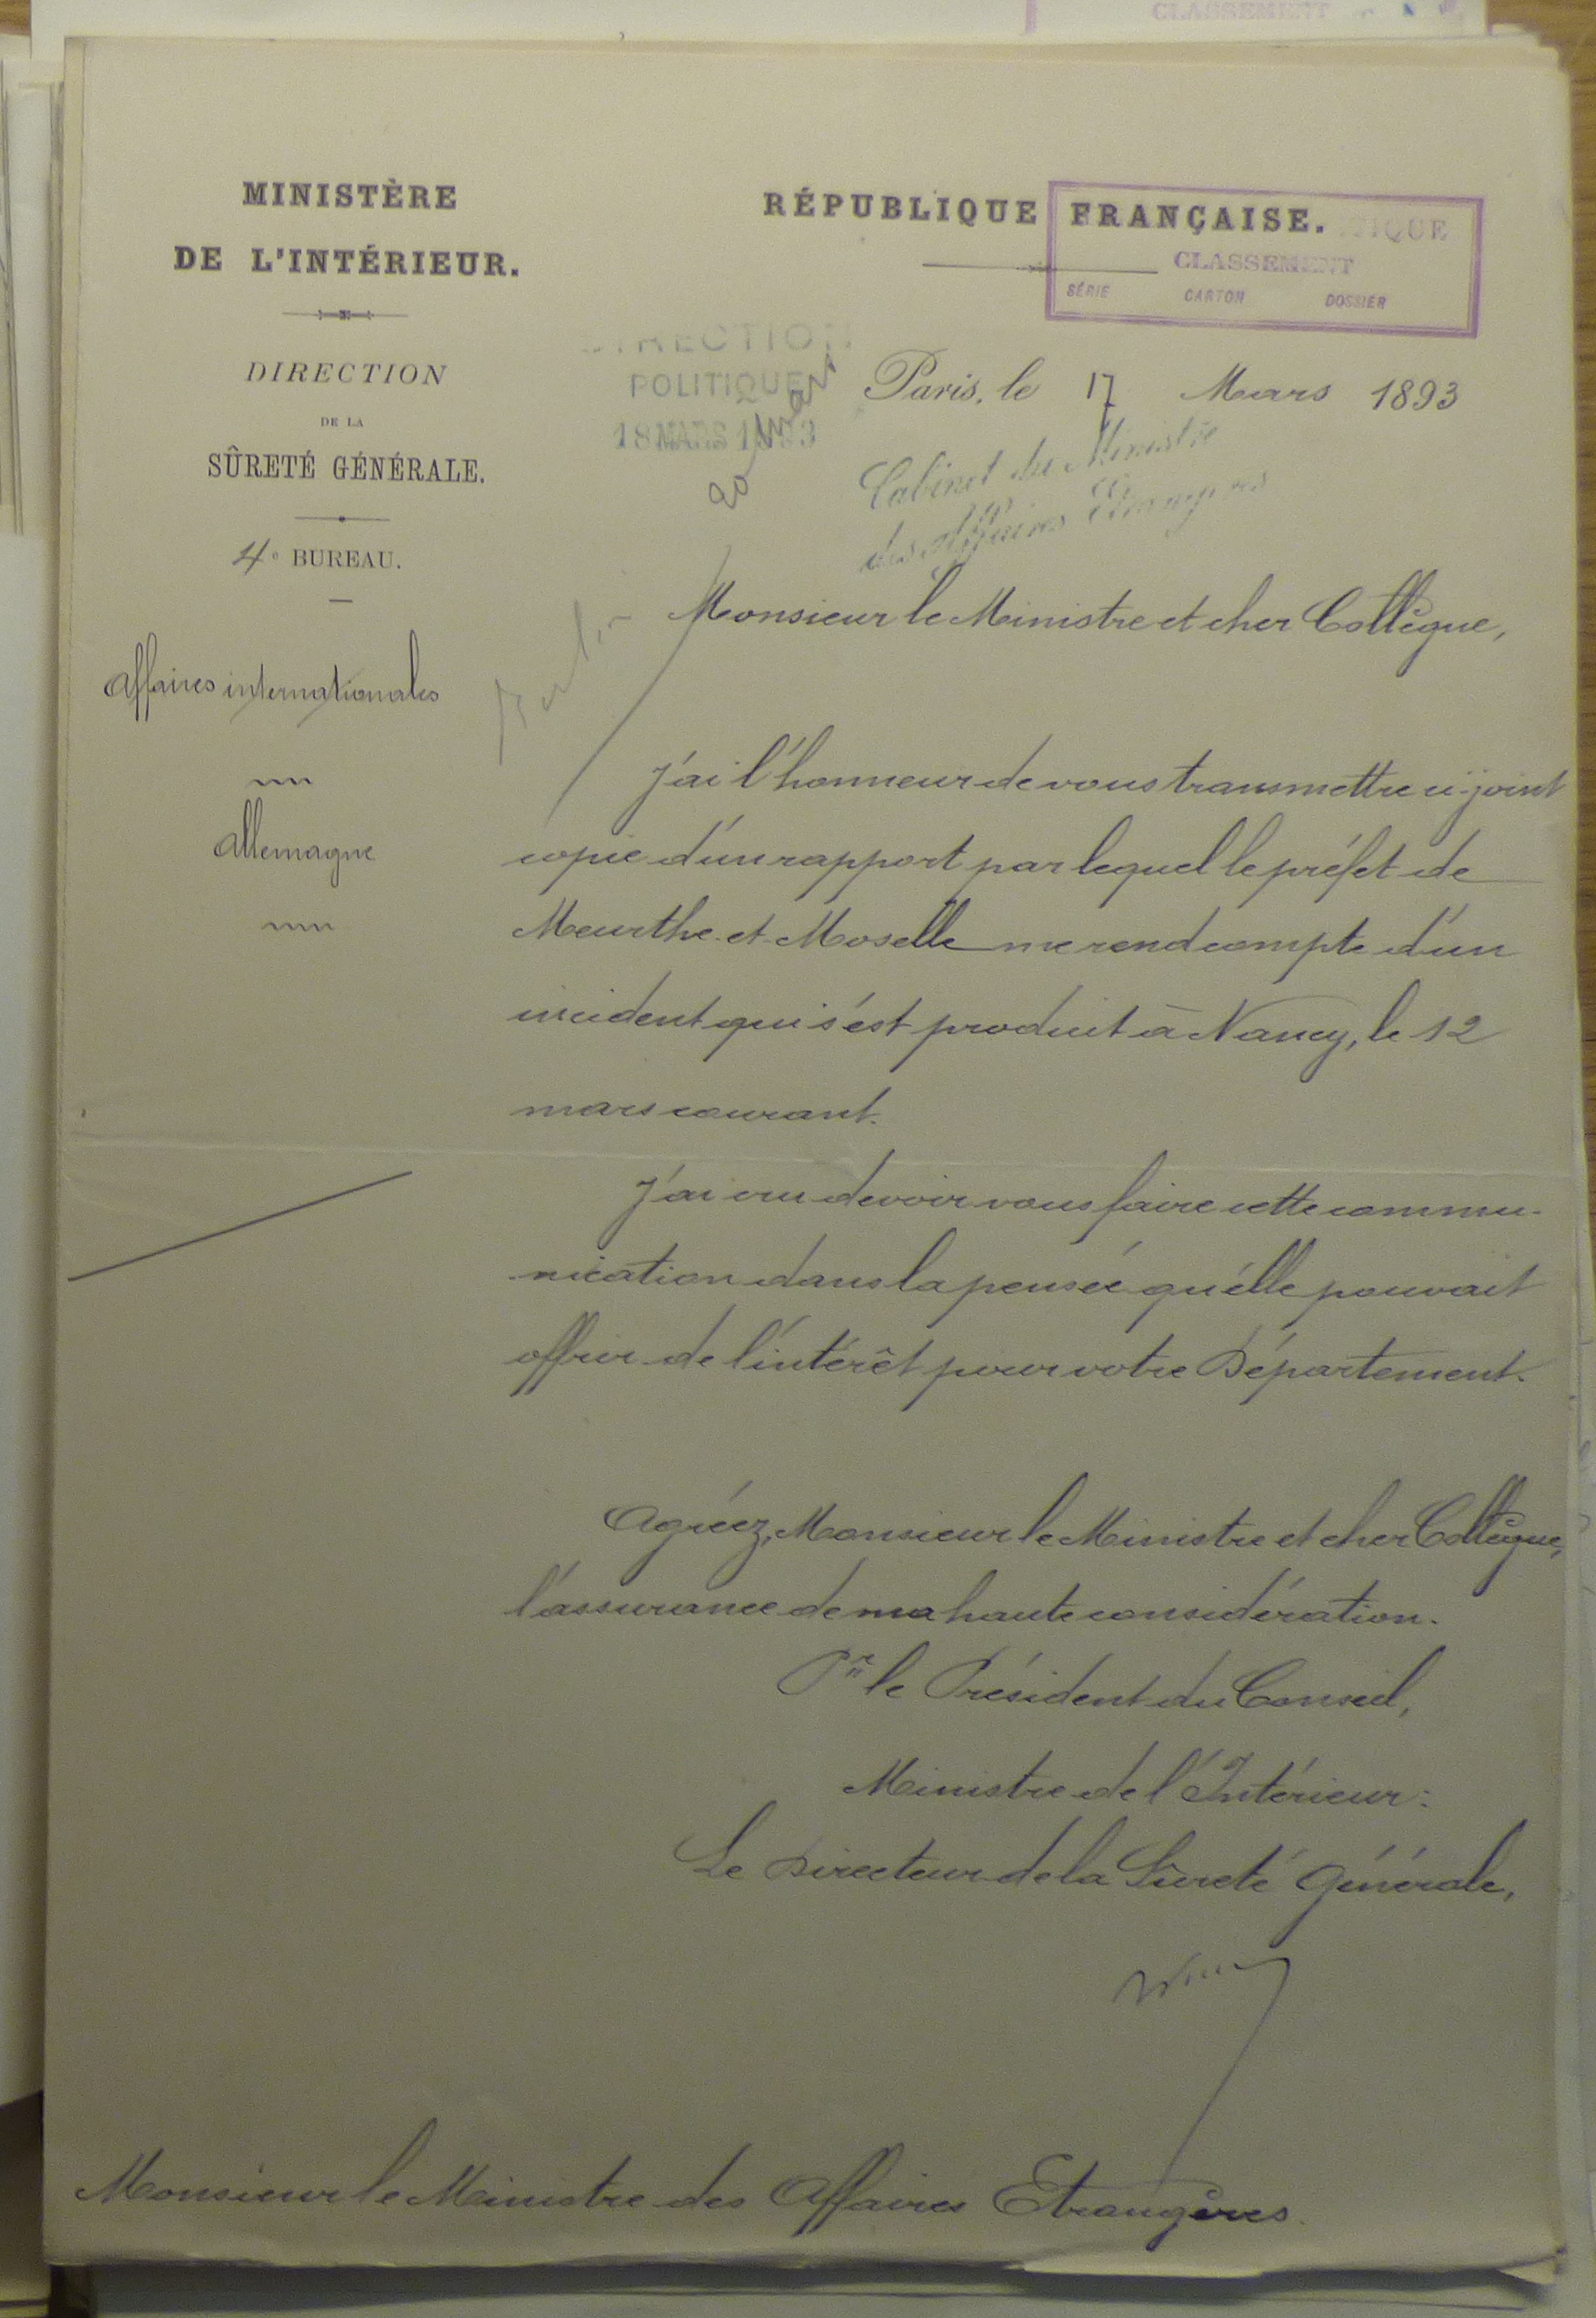 CLASSEMENT
MINISTÈRE
DE L'INTÉRIEUR.
DIRECTION
DE LA
SÛRETÉ GÉNÉRALE.
4e BUREAU.
Affaires internationales
Allemagne
RÉPUBLIQUE FRANÇAISE.
CLASSEMENT
SÉRIE CARTON DOSSIER
DIRECTION
POLITIQUE
18 MARS 1893
20 mars
Paris, le 17 Mars 1893
Cabinet du Ministre
des Affaires Etrangères
Monsieur le Ministre et cher Collègue,
J'ai l'honneur de vous transmettre ci-joint
copie d'un rapport par lequel le préfet de
Meurthe-et-Moselle me rend compte d'un
incident qui s'est produit à Nancy, le 12
mars courant.
J'ai cru devoir vous faire cette commu-
nication dans la pensée qu'elle pouvait
offrir de l'intérêt pour votre Département.
Agréez, Monsieur le Ministre et cher Collègue,
l'assurance de ma haute considération.
Pr le Président du Conseil,
Ministre de l'Intérieur:
Le Directeur de la Sûreté Générale,
Monsieur le Ministre des Affaires Etrangères.